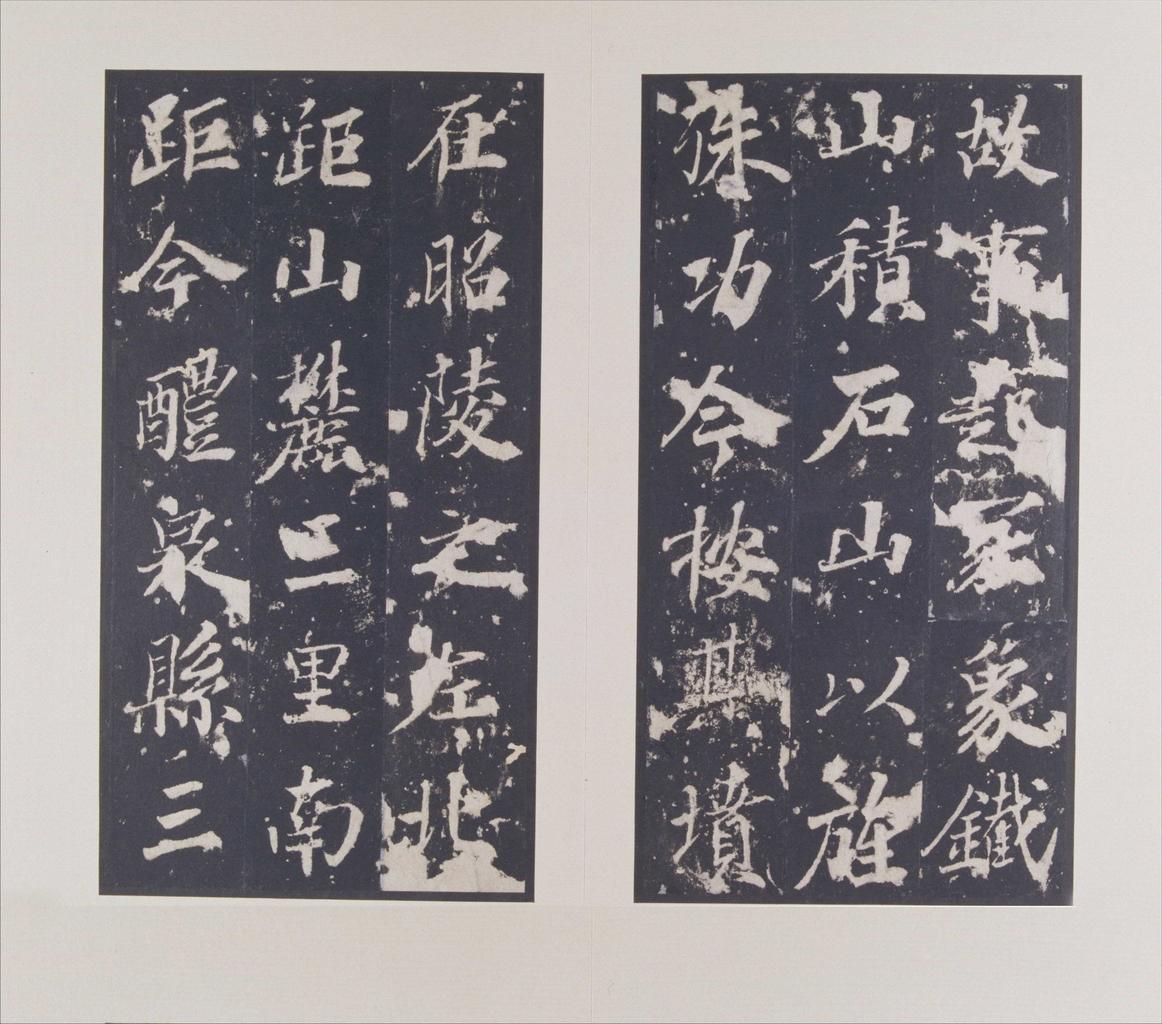 故事起冢象鐵
山積石山以旌
殊功今按其墳
在昭陵之左北
距山麓二里南
距今醴泉縣三